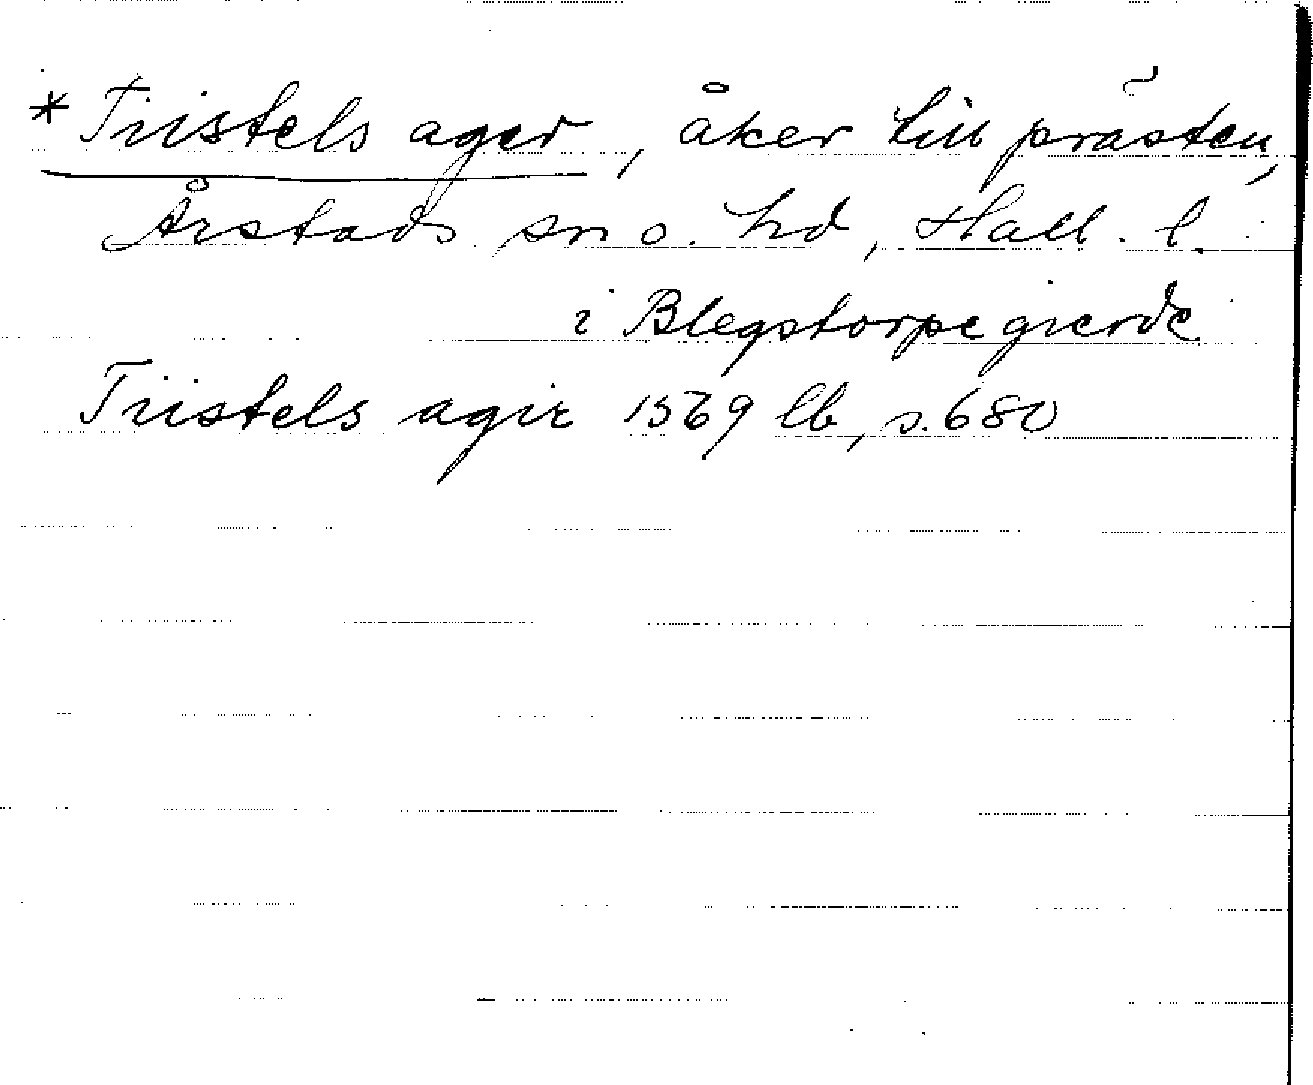 * Tristels ager, åker till prästen,
Årstads sn o. hd, Hall. l.
i Blegstorpe gierde
Tristels agir 1569 lb, s. 680